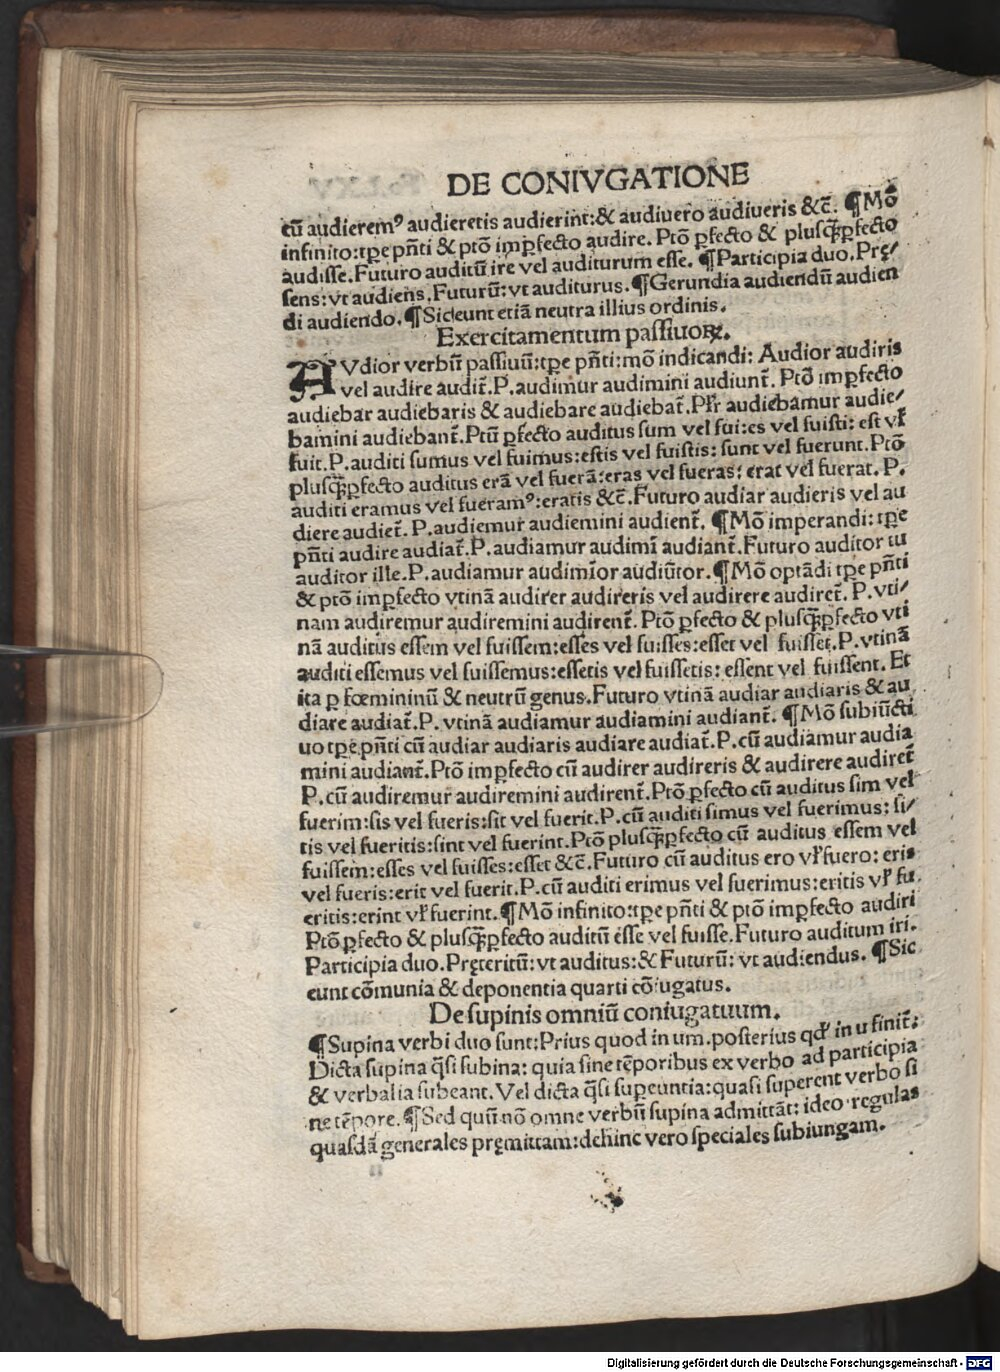 DE CONIVGATIONE
cū audieremꝰ audieretis audierint:& audiuero audiueris &c̄. ¶Mō
infinito:tꝑe pn̄ti & ptō imꝑfecto audire. Ptō ꝑfecto & plusꝗ̄ꝑfecto
audisse. Futuro auditū ire vel auditurum esse. ¶Participia duo. Prę/
sens: vt audiens. Futurū: vt auditurus. ¶Gerundia audiendū audien
di audiendo. ¶Sic eunt etiā neutra illius ordinis.
Exercitamentum passiuoꝝ.
AVdior verbū passiuū:tꝑe pn̄ti:mō indicandi: Audior audiris
vel audire audit̄. P. audimur audimini audiunt̄. Ptō imꝑfecto
audiebar audiebaris & audiebare audiebat̄. Plr̄ audiebamur audie/
bamini audiebant̄. Ptū ꝑfecto auditus sum vel fui:es vel fuisti: est vl̓
fuit. P. auditi sumus vel fuimus:estis vel fuistis: sunt vel fuerunt. Ptō
plusꝗ̄ꝑfecto auditus erā vel fuerā:eras vel fueras: erat vel fuerat. P.
auditi eramus vel fueramꝰ:eratis &c̄. Futuro audiar audieris vel au
diere audiet̄. P. audiemur audiemini audient̄. ¶Mō imperandi: tꝑe
pn̄ti audire audiat̄. P. audiamur audimī audiant̄. Futuro auditor tu
auditor ille. P. audiamur audimīor audiūtor. ¶Mō optādi tꝑe pn̄ti
& ptō imꝑfecto vtinā audirer audireris vel audirere audiret̄. P. vti/
nam audiremur audiremini audirent̄. Ptō ꝑfecto & plusꝗ̄ꝑfecto vti
nā auditus essem vel fuissem:esses vel fuisses:esset vel fuisset. P. vtinā
auditi essemus vel fuissemus:essetis vel fuissetis: essent vel fuissent. Et
ita ꝑ fœmininū & neutrū genus. Futuro vtinā audiar audiaris & au
diare audiat̄. P. vtinā audiamur audiamini audiant̄. ¶Mō subiūcti
uo tꝑe pn̄ti cū audiar audiaris audiare audiat̄. P. cū audiamur audia
mini audiant̄. Ptō imꝑfecto cū audirer audireris & audirere audiret̄
P. cū audiremur audiremini audirent̄. Ptō ꝑfecto cū auditus sim vel
fuerim:sis vel fueris:sit vel fuerit. P. cū auditi simus vel fuerimus: si/
tis vel fueritis:sint vel fuerint. Ptō plusꝗ̄ꝑfecto cū auditus essem vel
fuissem:esses vel fuisses:esset &c̄. Futuro cū auditus ero vl̓ fuero: eris
vel fueris:erit vel fuerit. P. cū auditi erimus vel fuerimus:eritis vl̓ fu
eritis:erint vl̓ fuerint. ¶Mō infinito:tꝑe pn̄ti & ptō imꝑfecto audiri
Ptō ꝑfecto & plusꝗ̄ꝑfecto auditū esse vel fuisse. Futuro auditum iri.
Participia duo. Pręteritū: vt auditus:& Futurū: vt audiendus. ¶Sic
eunt cōmunia & deponentia quarti cōiugatus.
De supinis omniū coniugatuum.
¶Supina verbi duo sunt:Prius quod in um. posterius qđ in u finit̄:
Dicta supina q̄si subina: quia sine tēporibus ex verbo ad participia
& verbalia subeant. Vel dicta q̄si supeuntia:quasi superent verbo si
ne tēpore. ¶Sed quū nō omne verbū supina admittāt: ideo regulas
quasdā generales pręmittam:dehinc vero speciales subiungam.
Digitalisierung gefördert durch die Deutsche Forschungsgemeinschaft - DFG